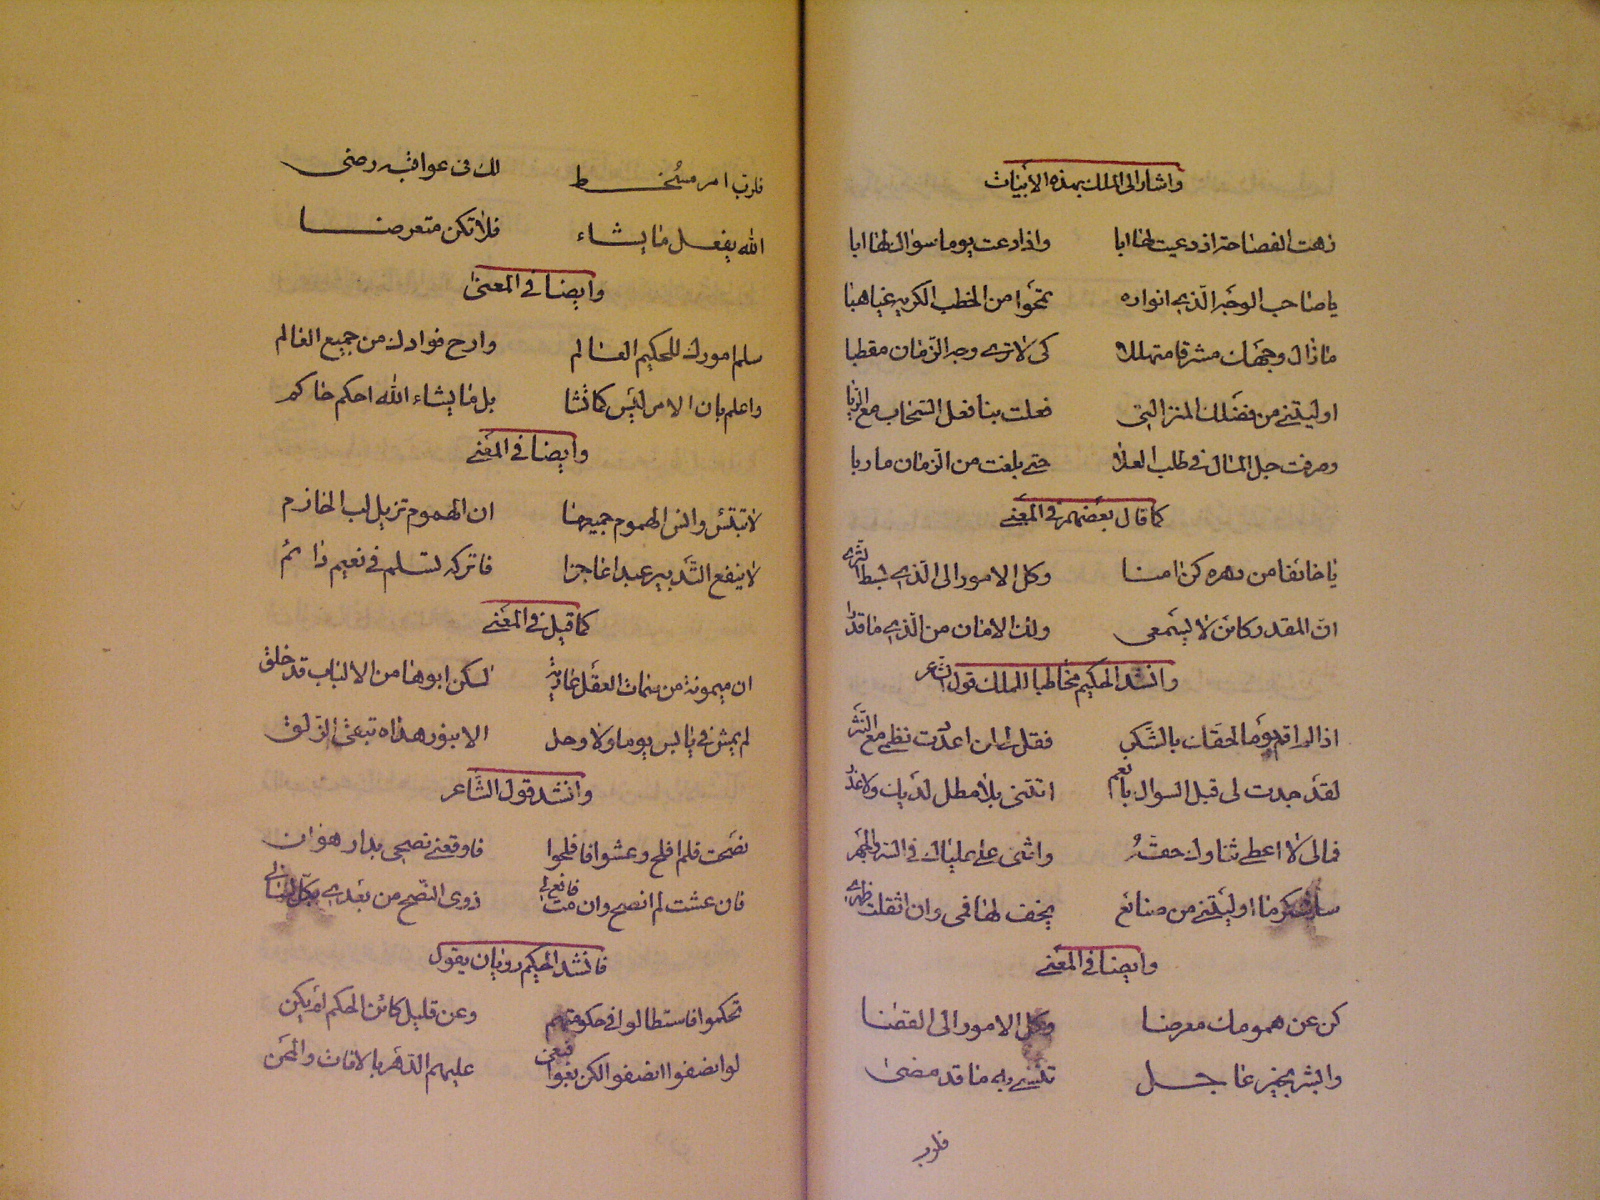 واشار الى الملك بهذه الابيات
زهت الفصاحة اذ دعيت لها ابا واذا دعت يوما سواك لها ابا
يا صاحب الوجه الذى انواره تمحوا من الخطب الكريه غياهبا
ما زال وجهك مشرقا متهللا كى لا ترى وجه الزمان مقطبا
اوليتنى من فضلك المنن التى فعلت بنا فعل السحاب مع الربا
وصرفت جل المال فى طلب العلا حتى بلغت من الزمان ماربا
كما قال بعضهم فى المعنى
يا خائفا من دهره كن امنا وكل الامور الى الذى بسط الثرى
ان المقدر كائن لا يمحى ولك الامان من الذى ما قدرا
وانشد الحكيم مخاطبا للملك قول الشاعر
اذا لم اقم يوما لحقك بالشكر فقل لى ان اعددت نظمى مع النثر
لقد جدت لى قبل السوال بانعم اتتنى بلا مطل لديك ولا عذر
فمالى لا اعطى ثناوك حقه واثنى على علياك فى السر والجهر
ساشكر ما اوليتنى من صنائع يخف لها فمى وان اثقلت ظهرى
وايضا فى المعنى
كن عن همومك معرضا وكل الامور الى القضا
وابشر بخير عاجل تنسى به ما قد مضى
فلرب
فلرب امر مسخط لك فى عواقبه رضى
الله يفعل ما يشاء فلا تكن متعرضا
وايضا فى المعنى
سلم امورك للحكيم العالم وارح فوادك من جميع العالم
واعلم بان الامر ليس كما تشا بل ما يشاء الله احكم حاكم
وايضا فى المعنى
لا تبتئس وانس الهموم جميعها ان الهموم تزيل لب الحازم
لا ينفع التدبير عبدا عاجزا فاتركه لتسلم فى نعيم دائم
كما قيل فى المعنى
ان ميمونة من سمات العقل عارية لكن ابوها من الالباب قد خلق
لم يمش فى يابس يوما ولا وحل الا بنور هداه تبعث الزلق
وانشد قول الشاعر
نصحت فلم افلح وغشوا فافلحوا فاوقعنى نصحى بدار هوان
فان عشت لم انصح وان مت فانع لى ذوى النصح من بعدى بكل لسان
فانشد الحكيم رويان يقول
تحكموا فاستطالوا فى حكومتهم وعن قليل كائن الحكم لم يكن
لو انصفوا انصفوا لكن بغوا فبغى عليهم الدهر بالافات والمحن